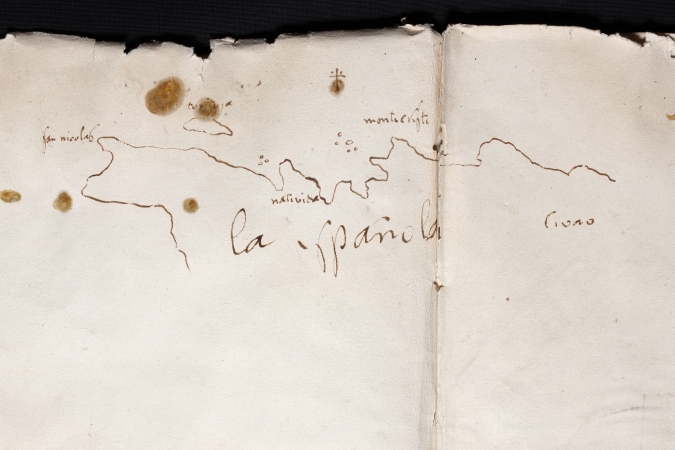 san nicolas
monte cristi
natividad
la española
Civao